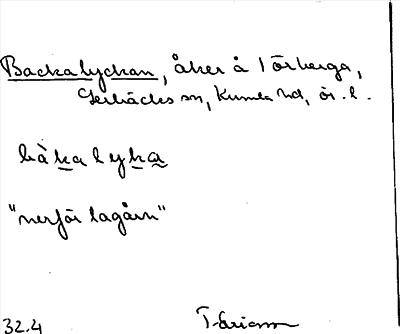 Backalyckan, åker å 1 Örberga,
Gerbäcks sn, Kumla hd, ör. l.
bàkalyka
"nerför lagårn"
32.4